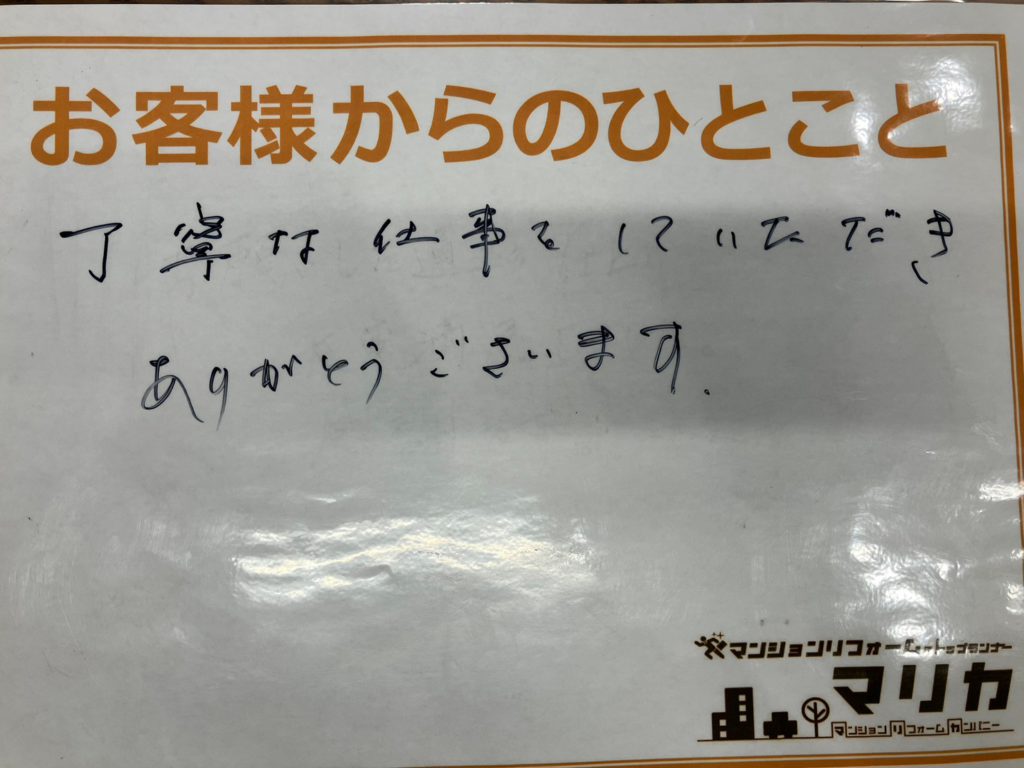 お客様からのひとこと
丁寧な仕事をしていただき
ありがとうございます.
マンションリフォームのトップランナー
マリカ
マンションリフォームカンパニー